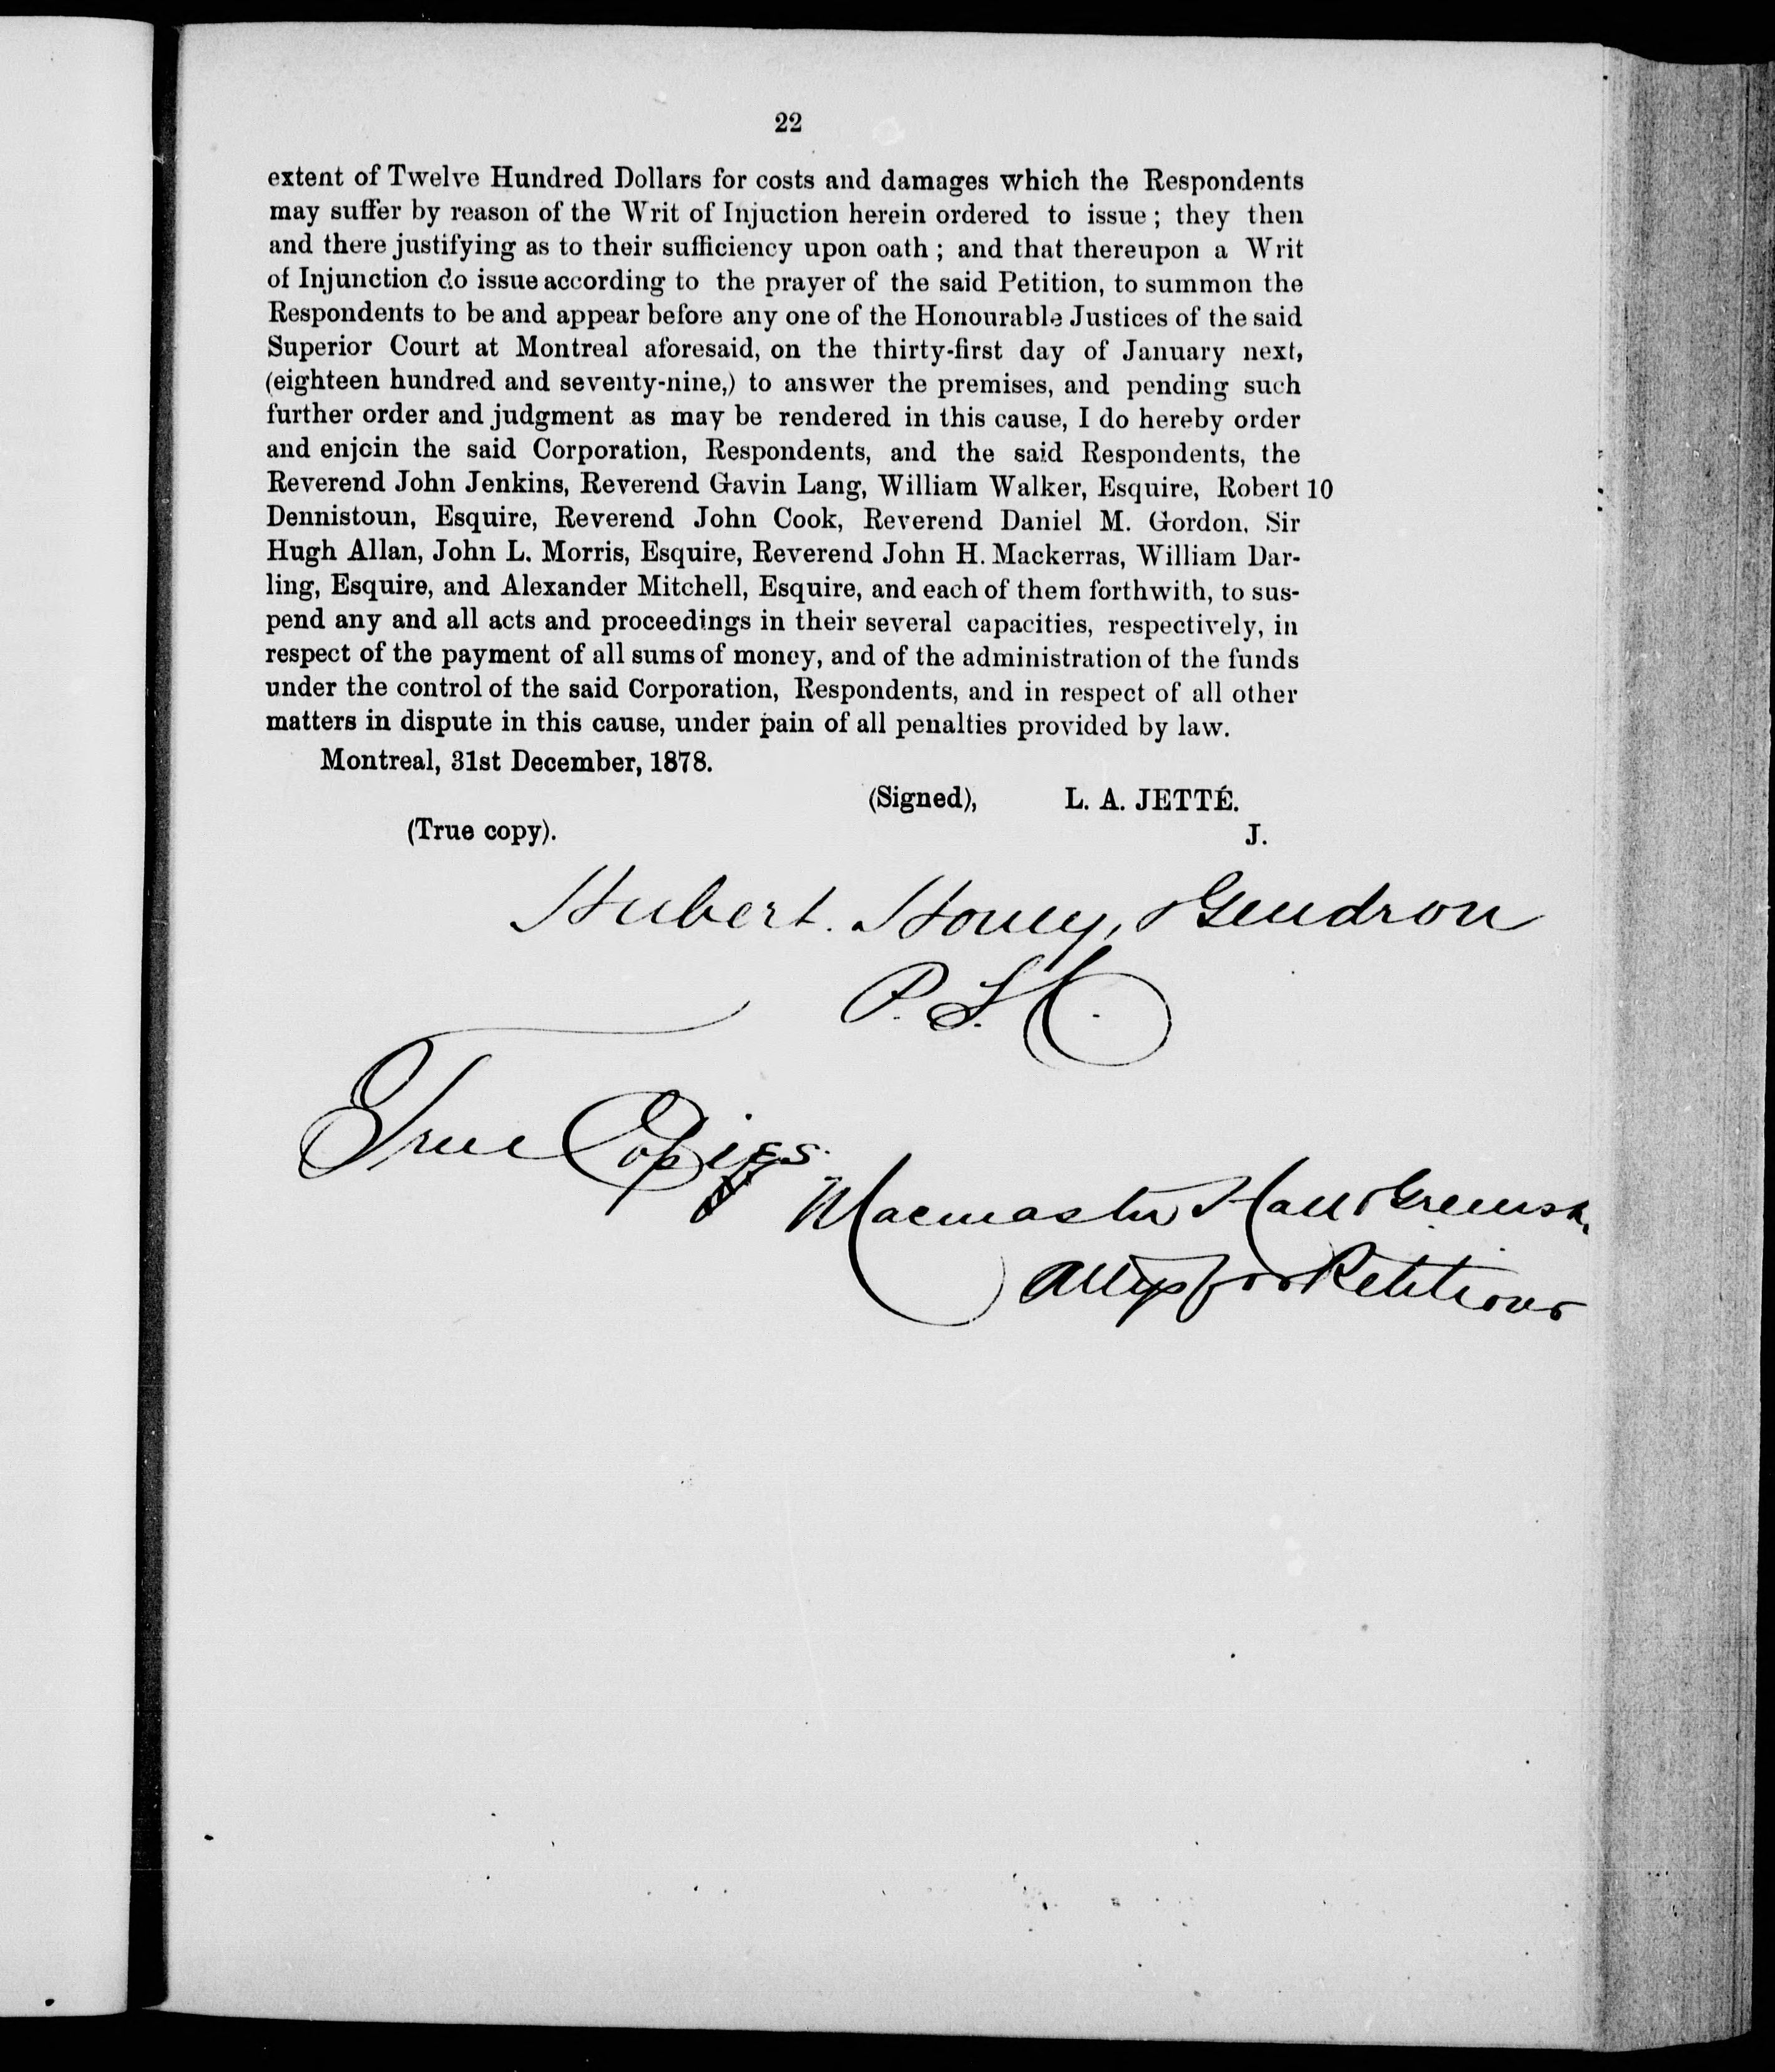 22
extent of Twelve Hundred Dollars for costs and damages which the Respondents
may suffer by reason of the Writ of Injuction herein ordered to issue ; they then
and there justifying as to their sufficiency upon oath ; and that thereupon a Writ
of Injunction do issue according to the prayer of the said Petition, to summon the
Respondents to be and appear before any one of the Honourable Justices of the said
Superior Court at Montreal aforesaid, on the thirty-first day of January next,
(eighteen hundred and seventy-nine,) to answer the premises, and pending such
further order and judgment as may be rendered in this cause, I do hereby order
and enjoin the said Corporation, Respondents, and the said Respondents, the
Reverend John Jenkins, Reverend Gavin Lang, William Walker, Esquire, Robert 10
Dennistoun, Esquire, Reverend John Cook, Reverend Daniel M. Gordon, Sir
Hugh Allan, John L. Morris, Esquire, Reverend John H. Mackerras, William Dar-
ling, Esquire, and Alexander Mitchell, Esquire, and each of them forthwith, to sus-
pend any and all acts and proceedings in their several capacities, respectively, in
respect of the payment of all sums of money, and of the administration of the funds
under the control of the said Corporation, Respondents, and in respect of all other
matters in dispute in this cause, under pain of all penalties provided by law.
Montreal, 31st December, 1878.
(Signed), L. A. JETTÉ.
(True copy). J.
Hubert. Honey, & Gendron
P. S. C.
True Copies.
Macmaster Hall & Greensh
Attys for Petitioner